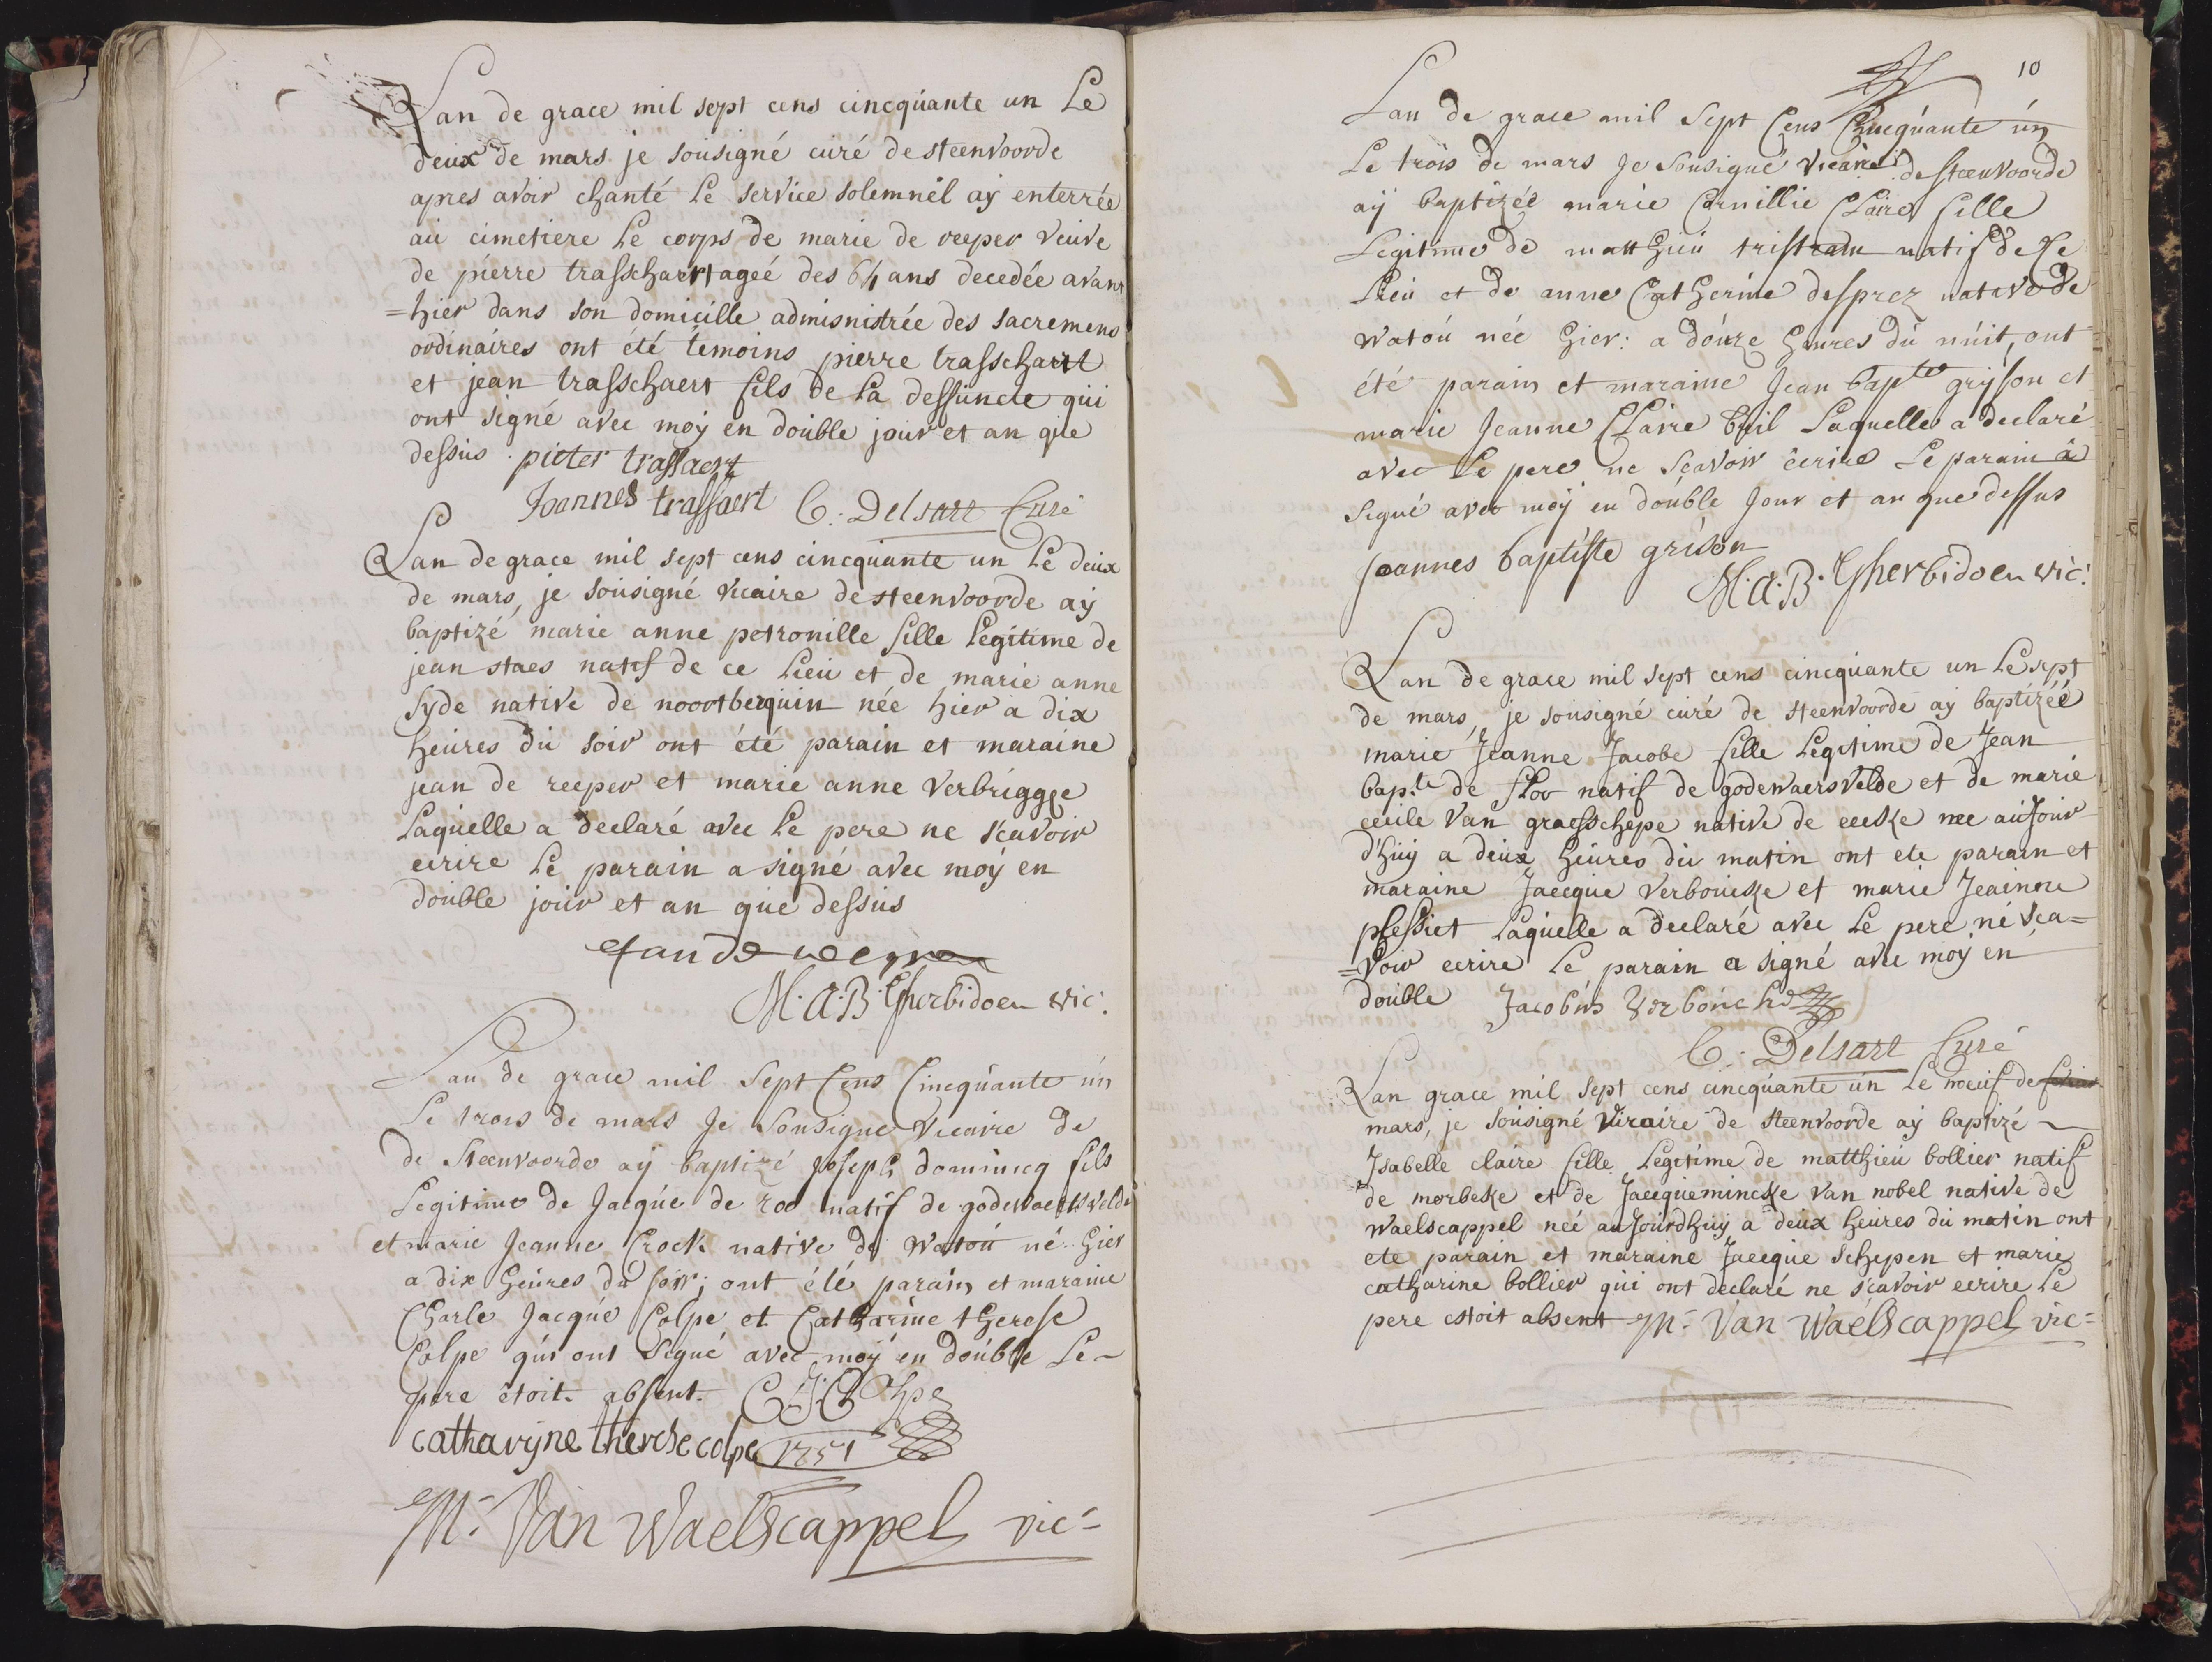 Lan de grace mil sept cens cincquante un Le
deux de mars je sousigné curé de steenvoorde
apres avoir chanté Le service solemnél aÿ enterrée
au cimetiere Le corps de marie de reeper veuve
de pierre trasschaert ageé des 64 ans decedée avant
=hier dans son domicille admisnistrée des sacremens
ordinaires ont été témoins pierre trasschaert
et jean trasschaert fils de La deffuncte qui
ont signé avec moÿ en double jour et an que
dessus . pieter trassaert
Joannes trassaert C. Delsart Curé
Lan de grace mil sept cens cincquante un Le deux
de mars, je sousigné vicaire de steenvoorde aÿ
baptizé marie anne petronille fille Legitime de
jean staes natif de ce Lieu et de marie anne
syde native de nootberquin née hier a dix
heures du soir ont été parain et maraine
jean de reeper et marie anne verbrigghe
Laquelle a declaré avec Le pere ne scavoir
ecrire Le parain a signé avec moÿ en
double jour et an que dessus
M. A. B. Gherbidoen vic:
Lan de grace mil Sept Cens Cincquante ún
Le trois de mars Je Sousigné vicaire de
de Steenvoorde aÿ baptizé Joseph dominicq fils
Legitime de Jacque de roo natif de godewaersvelde
et marie Jeanne Crock native de Watou né hier
a dix heures du soir; ont été parain et maraine
Charle Jacque Colpe et Catharine therese
Colpe qui ont Signé avec moÿ en doúble Le-
pere etoit absent. C: J: Colpe
catharyne therese colpe 1751
M: Van Waelscappel vic=
10
Lan de grace mil Sept Cens Cincquante ún
Le trois de mars Je Sousigné vicaire de steenvoorde
aÿ baptizéé marie Cornillie Claire fille
Legitime de matthieu tristram natif de Ce
Lieu et de anne Catherine desprez native de
Watou née hier: a doúze heures du núit, ont
été parain et maraine Jean bapte gryson et
marie Jeanne Claire bril Laquelle a declaré
avec Le pere ne Scavoir ecrire Le parain a
Signé avec moÿ en doúble Jour et an que dessus
Joannes baptiste grison
M. A. B. Gherbidoen vic:
Lan de grace mil sept cens cincquante un Le sept
de mars, je sousigné curé de steenvoorde aÿ baptizéé
marie Jeanne Jacobe fille Legitime de Jean
bap.te de floo natif de godewaersvelde et de marie
cecile van graesschepe native de eecke née auJour
d'huÿ a deux heures du matin ont ete parain et
maraine Jaecque verboucke et marie Jeanne
plessiet Laquelle a declaré avec Le pere né sca=
=voir ecrire Le parain a signé avec moÿ en
double Jacobus Verbouck
C. Delsart Curé
Lan grace mil sept cens cincquante un Le noeuf de
mars, je sousigné Viraire de steenvoorde aÿ baptizé
Isabelle claire fille Legitime de matthieu bollier natif
de morbeke et de Jaecquemincke van nobel native de
Waelscappel neé auJourdhuÿ a deux heures du matin ont
ete parain et maraine Jaecque schepen et marie
catharine bollier qui ont declaré ne scavoir ecrire Le
pere estoit absent M: Van Waelscappel vic=